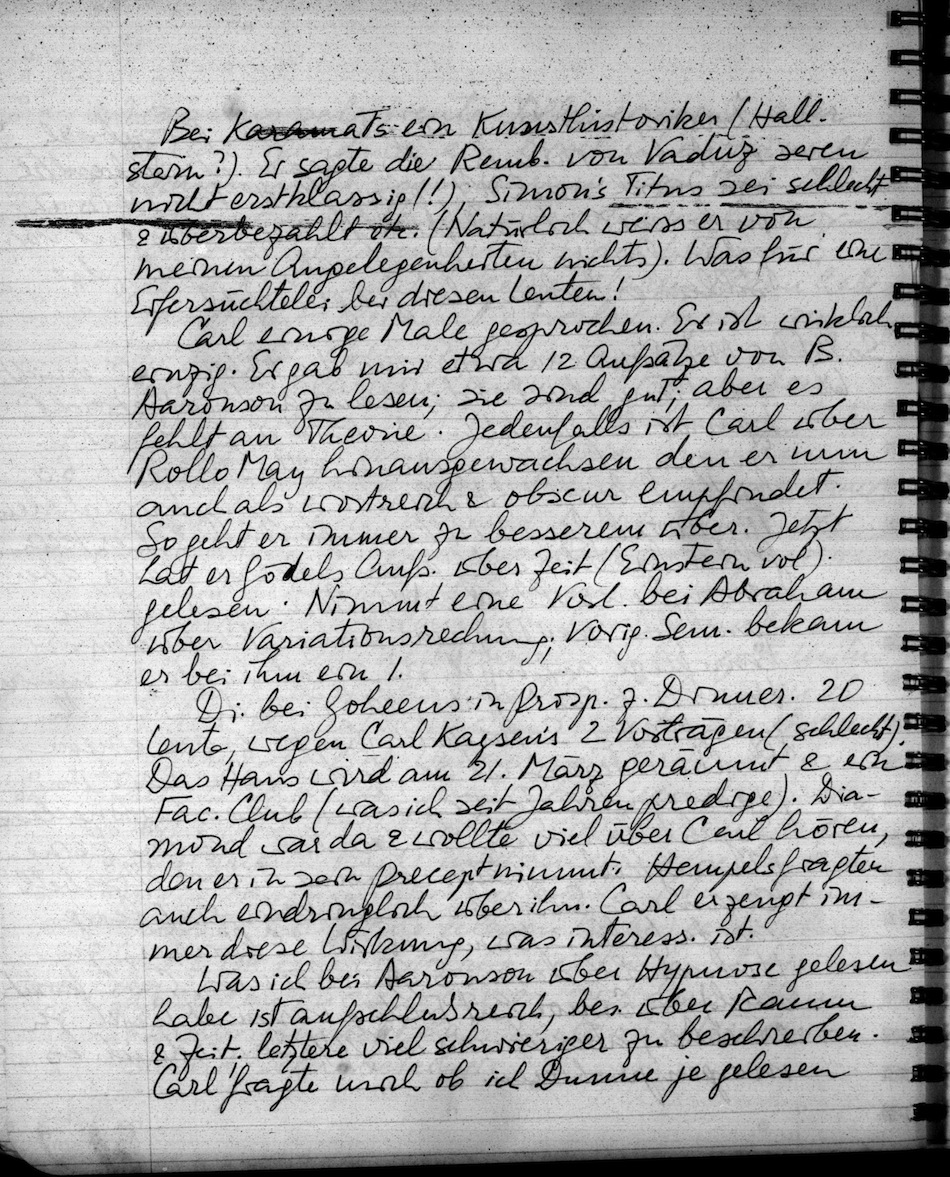 Bei Karamats ein Kunsthistoriker (Hall-
stein?). Er sagte die Remb. von Vaduz seien
nicht erstklassig(!!), Simon's Titus sei schlecht
& überbezahlt etc. (Natürlich weiss er von
meinen Angelegenheiten nichts). Was für eine
Eifersüchtelei bei diesen Leuten!
Carl einige Male gesprochen. Er ist wirklich
einzig. Er gab mir etwa 12 Aufsätze von B.
Aaronson zu lesen; sie sind gut; aber es
fehlt an Theorie. Jedenfalls ist Carl über
Rollo May hinausgewachsen den er nun
auch als wortreich & obscur empfindet.
So geht er immer zu besserem über. Jetzt
hat er Gödels Aufs. über Zeit (Einstein vol).
gelesen. Nimmt eine Vorl. bei Abraham
über Variationsrechnung, Vorig. Sem. bekam
er bei ihm ein 1.
Di. bei Goheens in Prosp. z. Dinner. 20
Leute, wegen Carl Kaysen's 2 Vorträgen (schlecht).
Das Haus wird am 21. März geräumt & ein
Fac. Club (was ich seit Jahren predige). Dia-
mond war da & wollte viel über Carl hören,
den er in sein precept nimmt. Hempels fragten
auch eindringlich über ihn. Carl erzeugt im-
mer diese Wirkung, was interess. ist.
Was ich bei Aaronson über Hypnose gelesen
habe ist aufschlußreich, bes. über Raum
& Zeit, letztere viel schwieriger zu beschreiben.
Carl fragte mich ob ich Dunne je gelesen